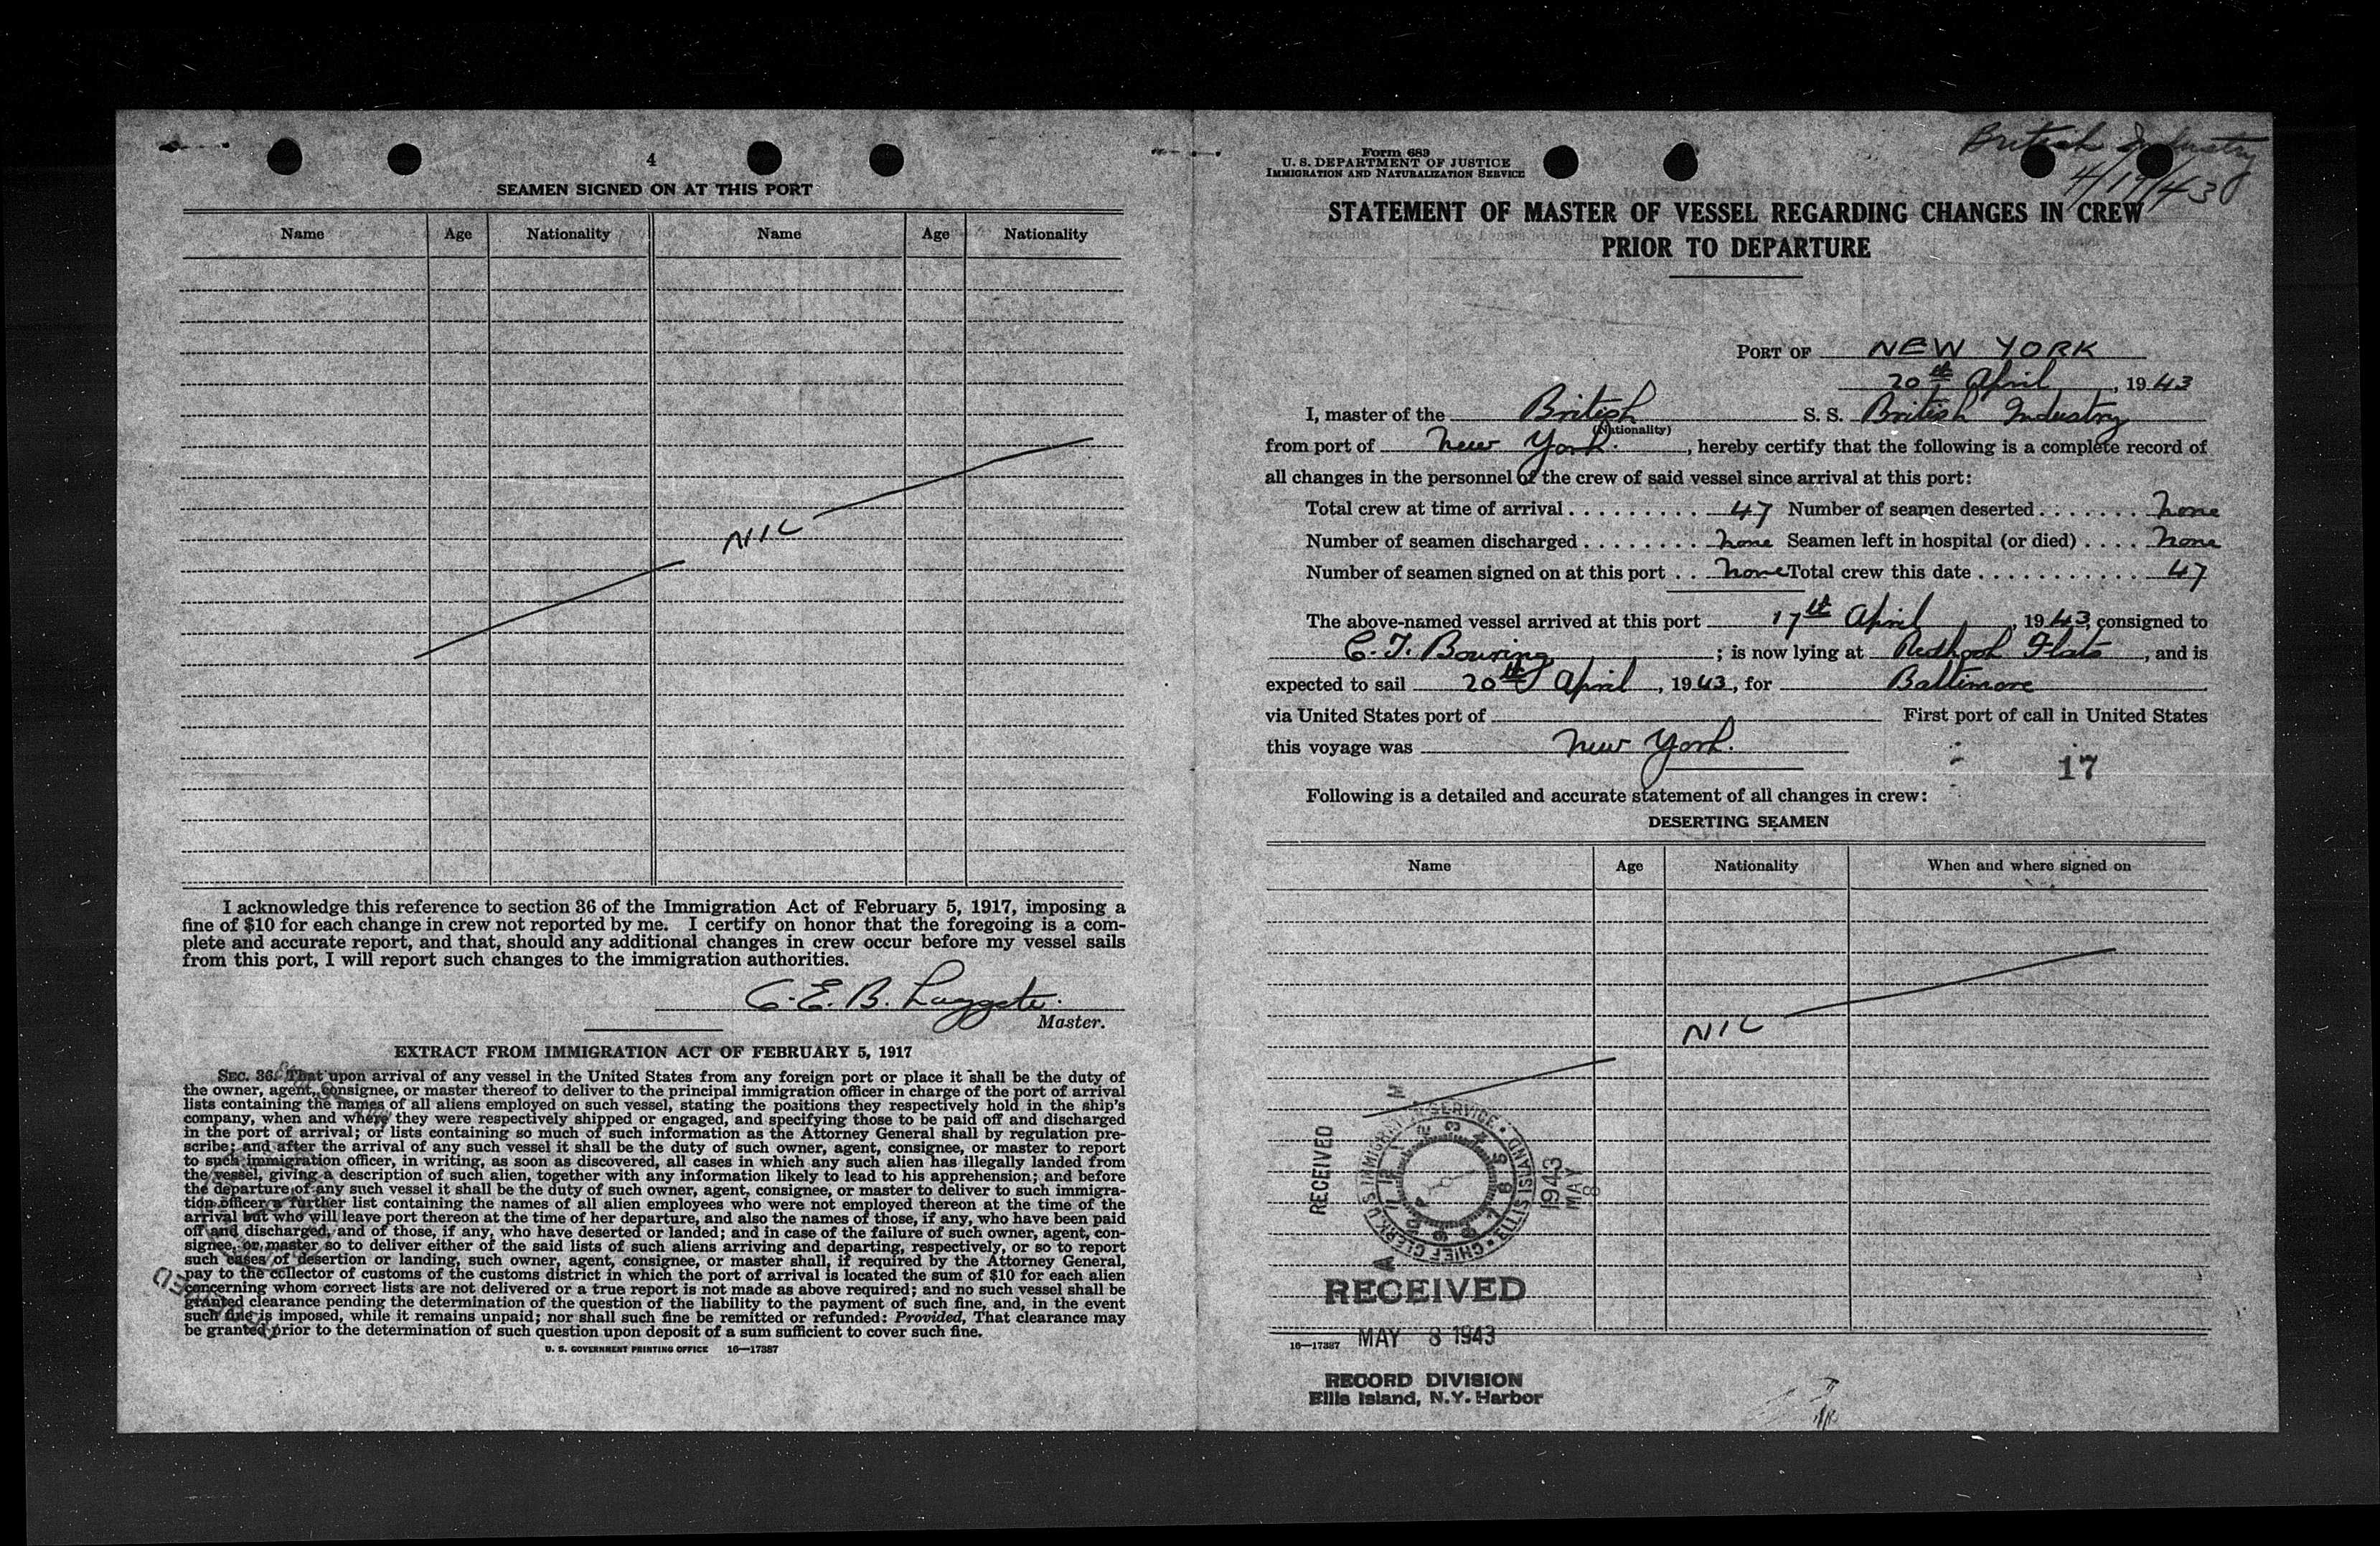 4
SEAMEN SIGNED ON AT THIS PORT
Name Age Nationality Name Age Nationality
NIL
I acknowledge this reference to section 36 of the Immigration Act of February 5, 1917, imposing a
fine of $10 for each change in crew not reported by me. I certify on honor that the foregoing is a com-
plete and accurate report, and that, should any additional changes in crew occur before my vessel sails
from this port, I will report such changes to the immigration authorities.
C. E. B. Laggate.
Master.
EXTRACT FROM IMMIGRATION ACT OF FEBRUARY 5, 1917
SEC. 36. That upon arrival of any vessel in the United States from any foreign port or place it shall be the duty of
the owner, agent, consignee, or master thereof to deliver to the principal immigration officer in charge of the port of arrival
lists containing the names of all aliens employed on such vessel, stating the positions they respectively hold in the ship's
company, when and where they were respectively shipped or engaged, and specifying those to be paid off and discharged
in the port of arrival; or lists containing so much of such information as the Attorney General shall by regulation pre-
scribe; and after the arrival of any such vessel it shall be the duty of such owner, agent, consignee, or master to report
to such immigration officer, in writing, as soon as discovered, all cases in which any such alien has illegally landed from
the vessel, giving a description of such alien, together with any information likely to lead to his apprehension; and before
the departure of any such vessel it shall be the duty of such owner, agent, consignee, or master to deliver to such immigra-
tion officer a further list containing the names of all alien employees who were not employed thereon at the time of the
arrival but who will leave port thereon at the time of her departure, and also the names of those, if any, who have been paid
off and discharged, and of those, if any, who have deserted or landed; and in case of the failure of such owner, agent, con-
signee, or master so to deliver either of the said lists of such aliens arriving and departing, respectively, or so to report
such cases of desertion or landing, such owner, agent, consignee, or master shall, if required by the Attorney General,
pay to the collector of customs of the customs district in which the port of arrival is located the sum of $10 for each alien
concerning whom correct lists are not delivered or a true report is not made as above required; and no such vessel shall be
granted clearance pending the determination of the question of the liability to the payment of such fine, and, in the event
such fine is imposed, while it remains unpaid; nor shall such fine be remitted or refunded: Provided, That clearance may
be granted prior to the determination of such question upon deposit of a sum sufficient to cover such fine.
U. S. GOVERNMENT PRINTING OFFICE 16—17387
British Industry
4/19/43
Form 689
U. S. DEPARTMENT OF JUSTICE
IMMIGRATION AND NATURALIZATION SERVICE
STATEMENT OF MASTER OF VESSEL REGARDING CHANGES IN CREW
PRIOR TO DEPARTURE
PORT OF NEW YORK
20th April, 1943
I, master of the British S. S. British Industry
(Nationality)
from port of New York., hereby certify that the following is a complete record of
all changes in the personnel of the crew of said vessel since arrival at this port:
Total crew at time of arrival . . . . . . . . . 47 Number of seamen deserted . . . . . . . None
Number of seamen discharged . . . . . . . . None Seamen left in hospital (or died) . . . . None
Number of seamen signed on at this port . . None Total crew this date . . . . . . . . . . . . 47
The above-named vessel arrived at this port 17th April, 1943, consigned to
C. T. Bowring; is now lying at Redhook Flats, and is
expected to sail 20th April, 1943, for Baltimore
via United States port of First port of call in United States
this voyage was New York.
17
Following is a detailed and accurate statement of all changes in crew:
DESERTING SEAMEN
Name Age Nationality When and where signed on
NIL
RECEIVED
CHIEF CLERK U S IMMIGRATION SERVICE • ELLIS ISLAND •
1943
MAY
8
RECEIVED
16—17387 MAY 8 1943
RECORD DIVISION
Ellis Island, N.Y. Harbor